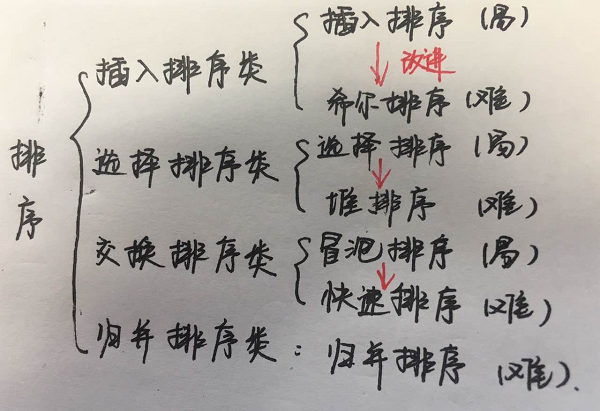 排序
插入排序类
插入排序(易)
改进
希尔排序(难)
选择排序类
选择排序(易)
堆排序(难)
交换排序类
冒泡排序(易)
快速排序(难)
归并排序类:归并排序(难).